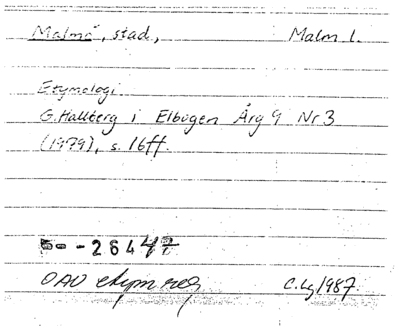 Malmö, stad, Malm l.
Etymologi
G. Hallberg i Elbogen Årg 9 Nr 3
(1979), s. 16ff.
OAU etym reg C. Lg 1987